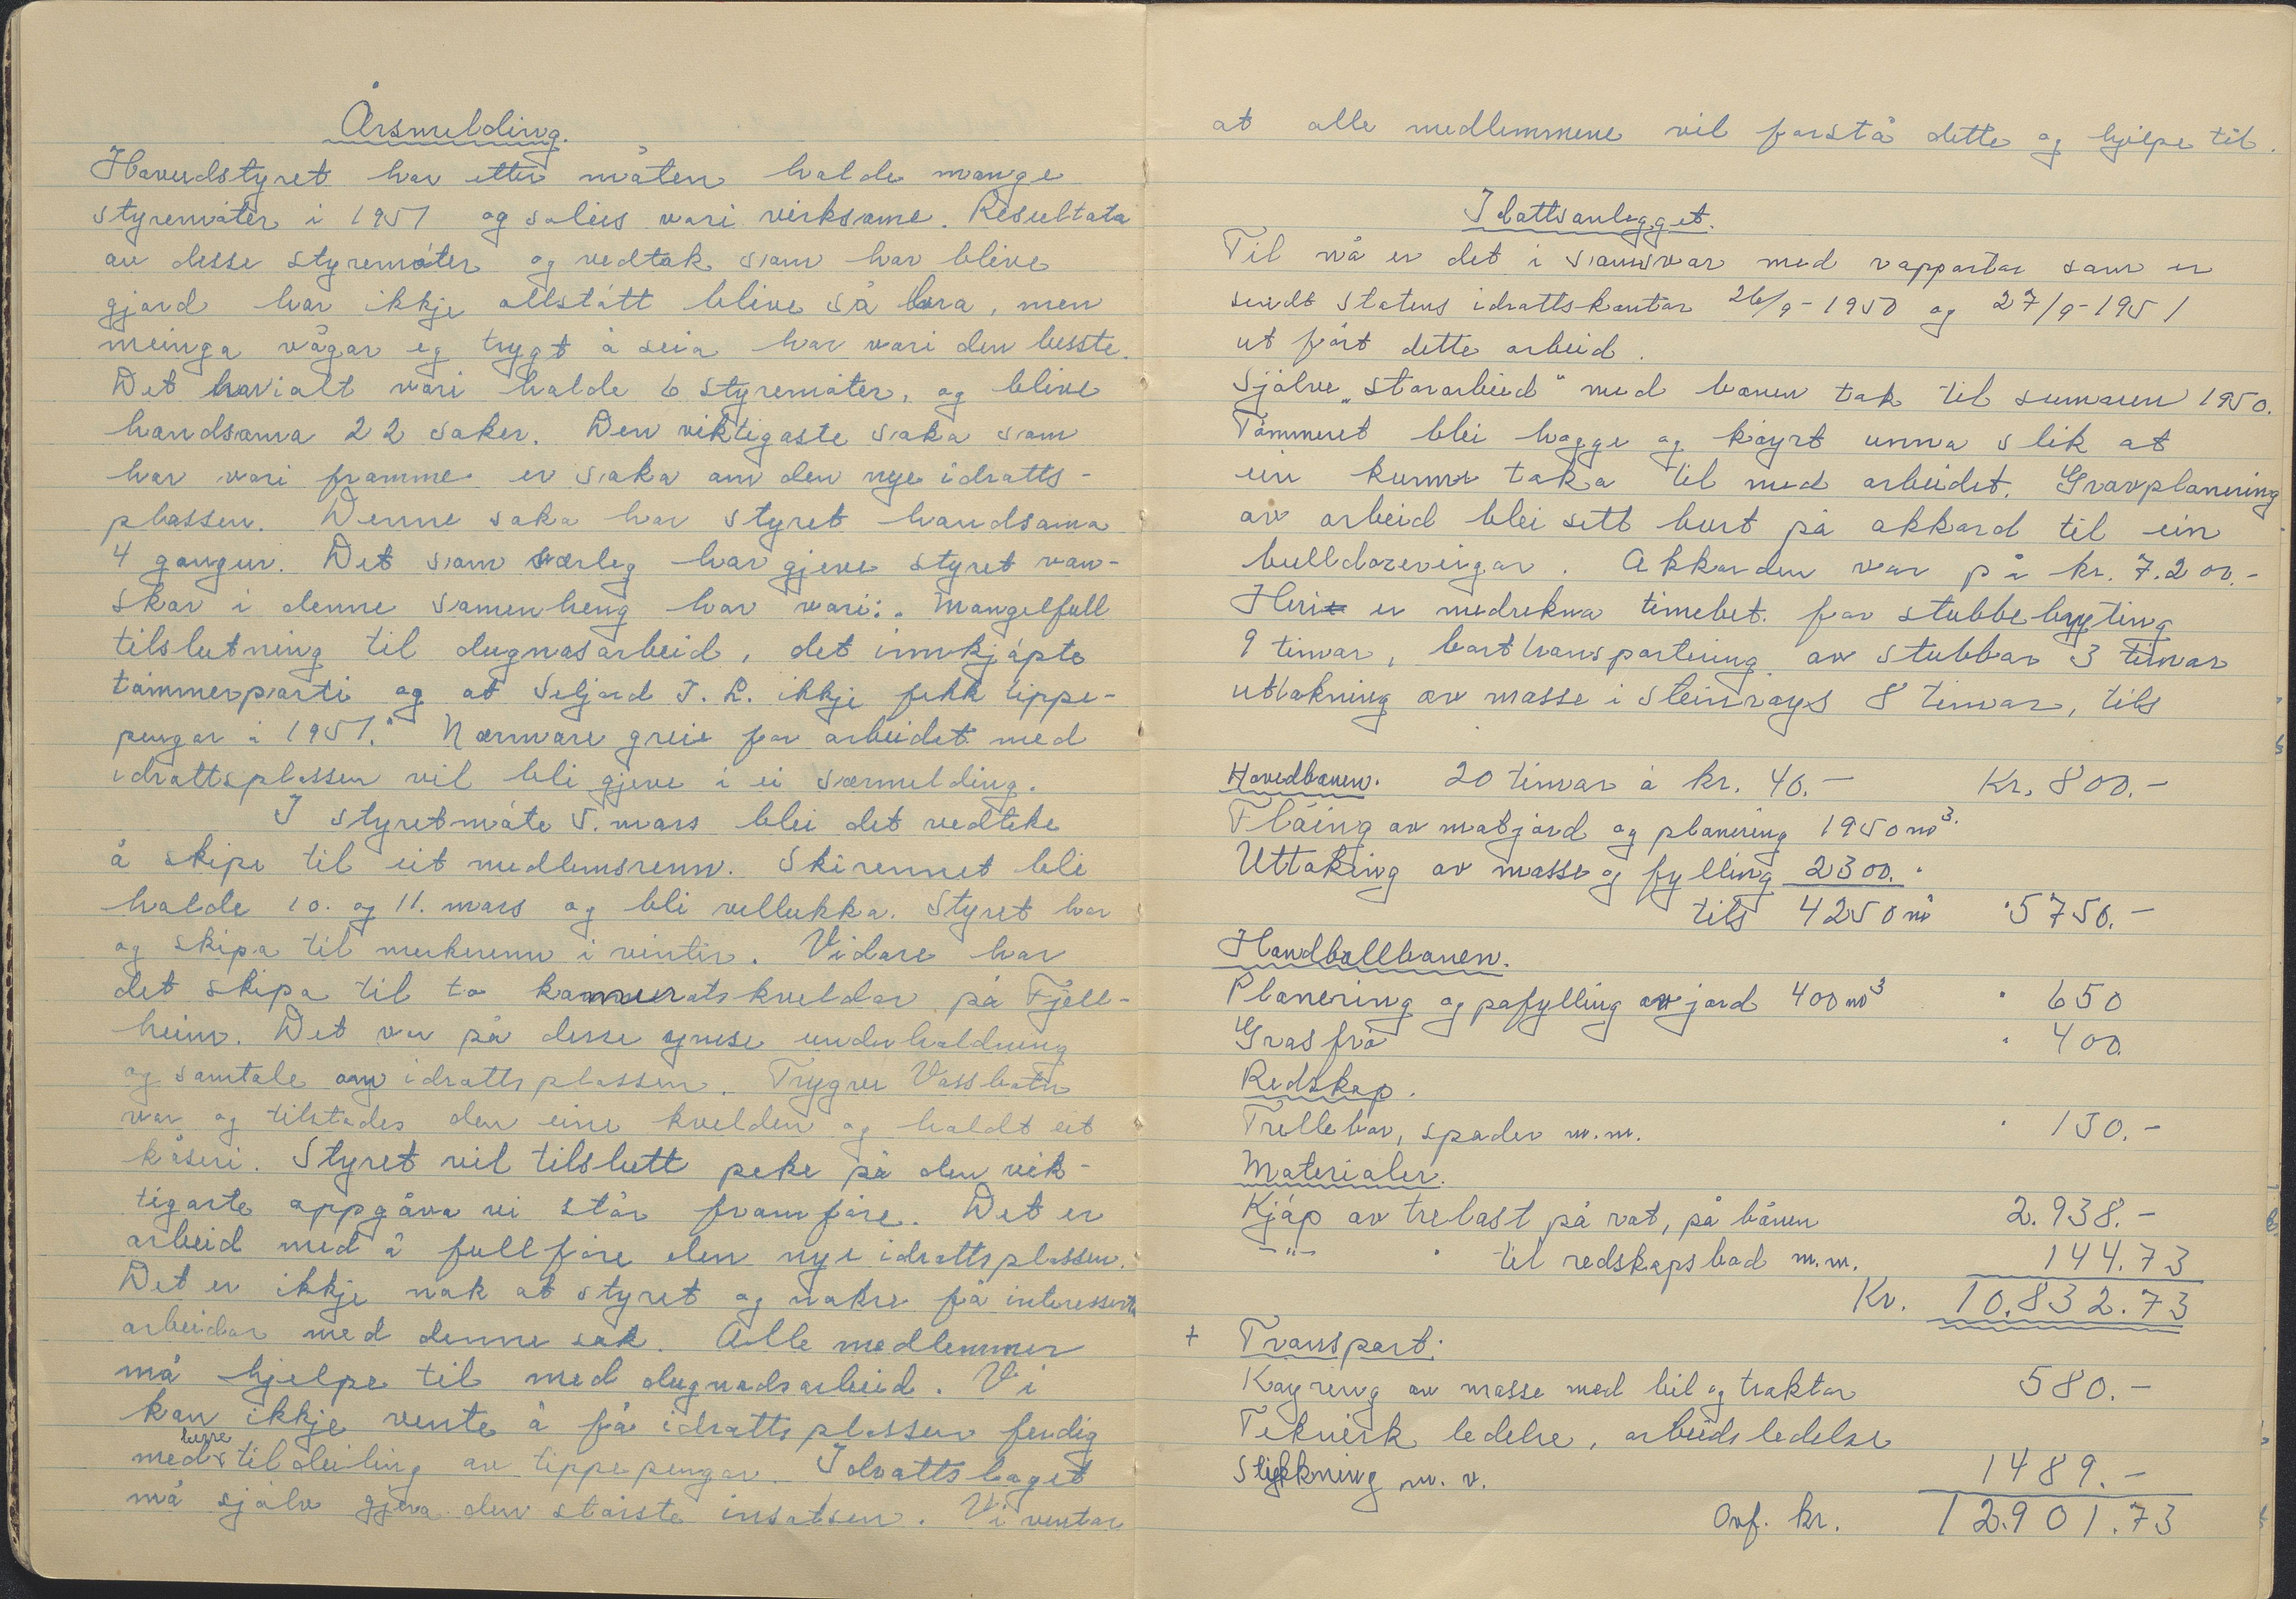 Årsmelding.
Hovudstyret har etter måten halde mange
styremåter i 1951 og soleis vori virksame. Resultata
av desse styremøter og vedtak som har blive
gjord har ikkje allstått blive så bra, men
meinga vågar eg trygt å seia har vori den besste.
Det har ialt vori halde 6 styremøter, og blive
handsama 22 saker. Den viktigaste saka som
har vori framme er saka om den nye idratts-
plassen. Denne saka har styret handsama
4 gongur. Det som særleg har gjeve styret van-
skar i denne samenheng har vori: „Mangelfull
tilslutning til dugnasarbeid, det innkjøpte
tømmerparti og at Seljord I. L. ikkje fekk tippe-
pengar i 1951." Nærmare greie for arbeidet med
idrattsplassen vil bli gjeve i ei særmelding.
I styretmøte 5. mars blei det vedteke
å skipe til eit medlemsrenn. Skirennet blei
halde 10. og 11. mars og blei vellukka. Styret har
og skipa til merkerenn i vinter. Vidare har
det skipa til to kameratskveldar på Fjell-
heim. Det var på desse ymse underhaldning
og samtale om idrattsplassen. Trygve Vassbotn
var og tilstades den eine kvelden og haldt eit
kåseri. Styret vil tilslutt peke på den vik-
tigaste oppgåva vi står framføre. Det er
arbeid med å fullføre den nye idrattsplassen.
Det er ikkje nok at styret og nokre få interesserte
arbeidar med denne sak. Alle medlemmer
må hjelpe til med dugnadsarbeid. Vi
kan ikkje vente å få idrattsplassen ferdig
berre
med tildeiling av tippepengar. Idrattslaget
må sjølv gjeva den største insatsen. Vi ventar
at alle medlemmene vil forstå dette og hjelpe til.
Idattsanlegget.
Til nå er det i samsvar med rapportar som er
sendt Statens idrattskontor 26/9-1950 og 27/9-1951
utført dette arbeid.
Sjølve „storarbeid" med banen tok til sumaren 1950.
Tømmeret blei hogge og køyrt unna slik at
ein kunne taka til med arbeidet. Grovplanering
av arbeid blei sett burt på akkord til ein
bulldozereigar. Akkorden var på kr. 7.200.-
Heri er medrekna timebet. for stubbebryting
9 timar, borttransportering av stubbar 3 timar
uttakning av masse i steinrøys 8 timar, tils
Hovedbanen. 20 timar à kr. 40.- Kr. 800.-
Flåing av matjord og planering 1950 m³.
Uttaking av masse og fylling 2300. "
tils 4250 m³ " 5750.-
Handballbanen.
Planering og påfylling av jord 400 m³ " 650
Grasfrø " 400
Redskap.
Trillebår, spader m.m. " 150.-
Materialer.
Kjøp av trelast på rot, på bånen 2.938.-
-"- " til redskapsbod m.m. 144.73
Kr. 10.832.73
+ Transport.
Køyring av masse med bil og traktor 580.-
Teknisk ledelse, arbeidsledelse
Stikkning m. v. 1489.-
Ovf. kr. 12.901.73